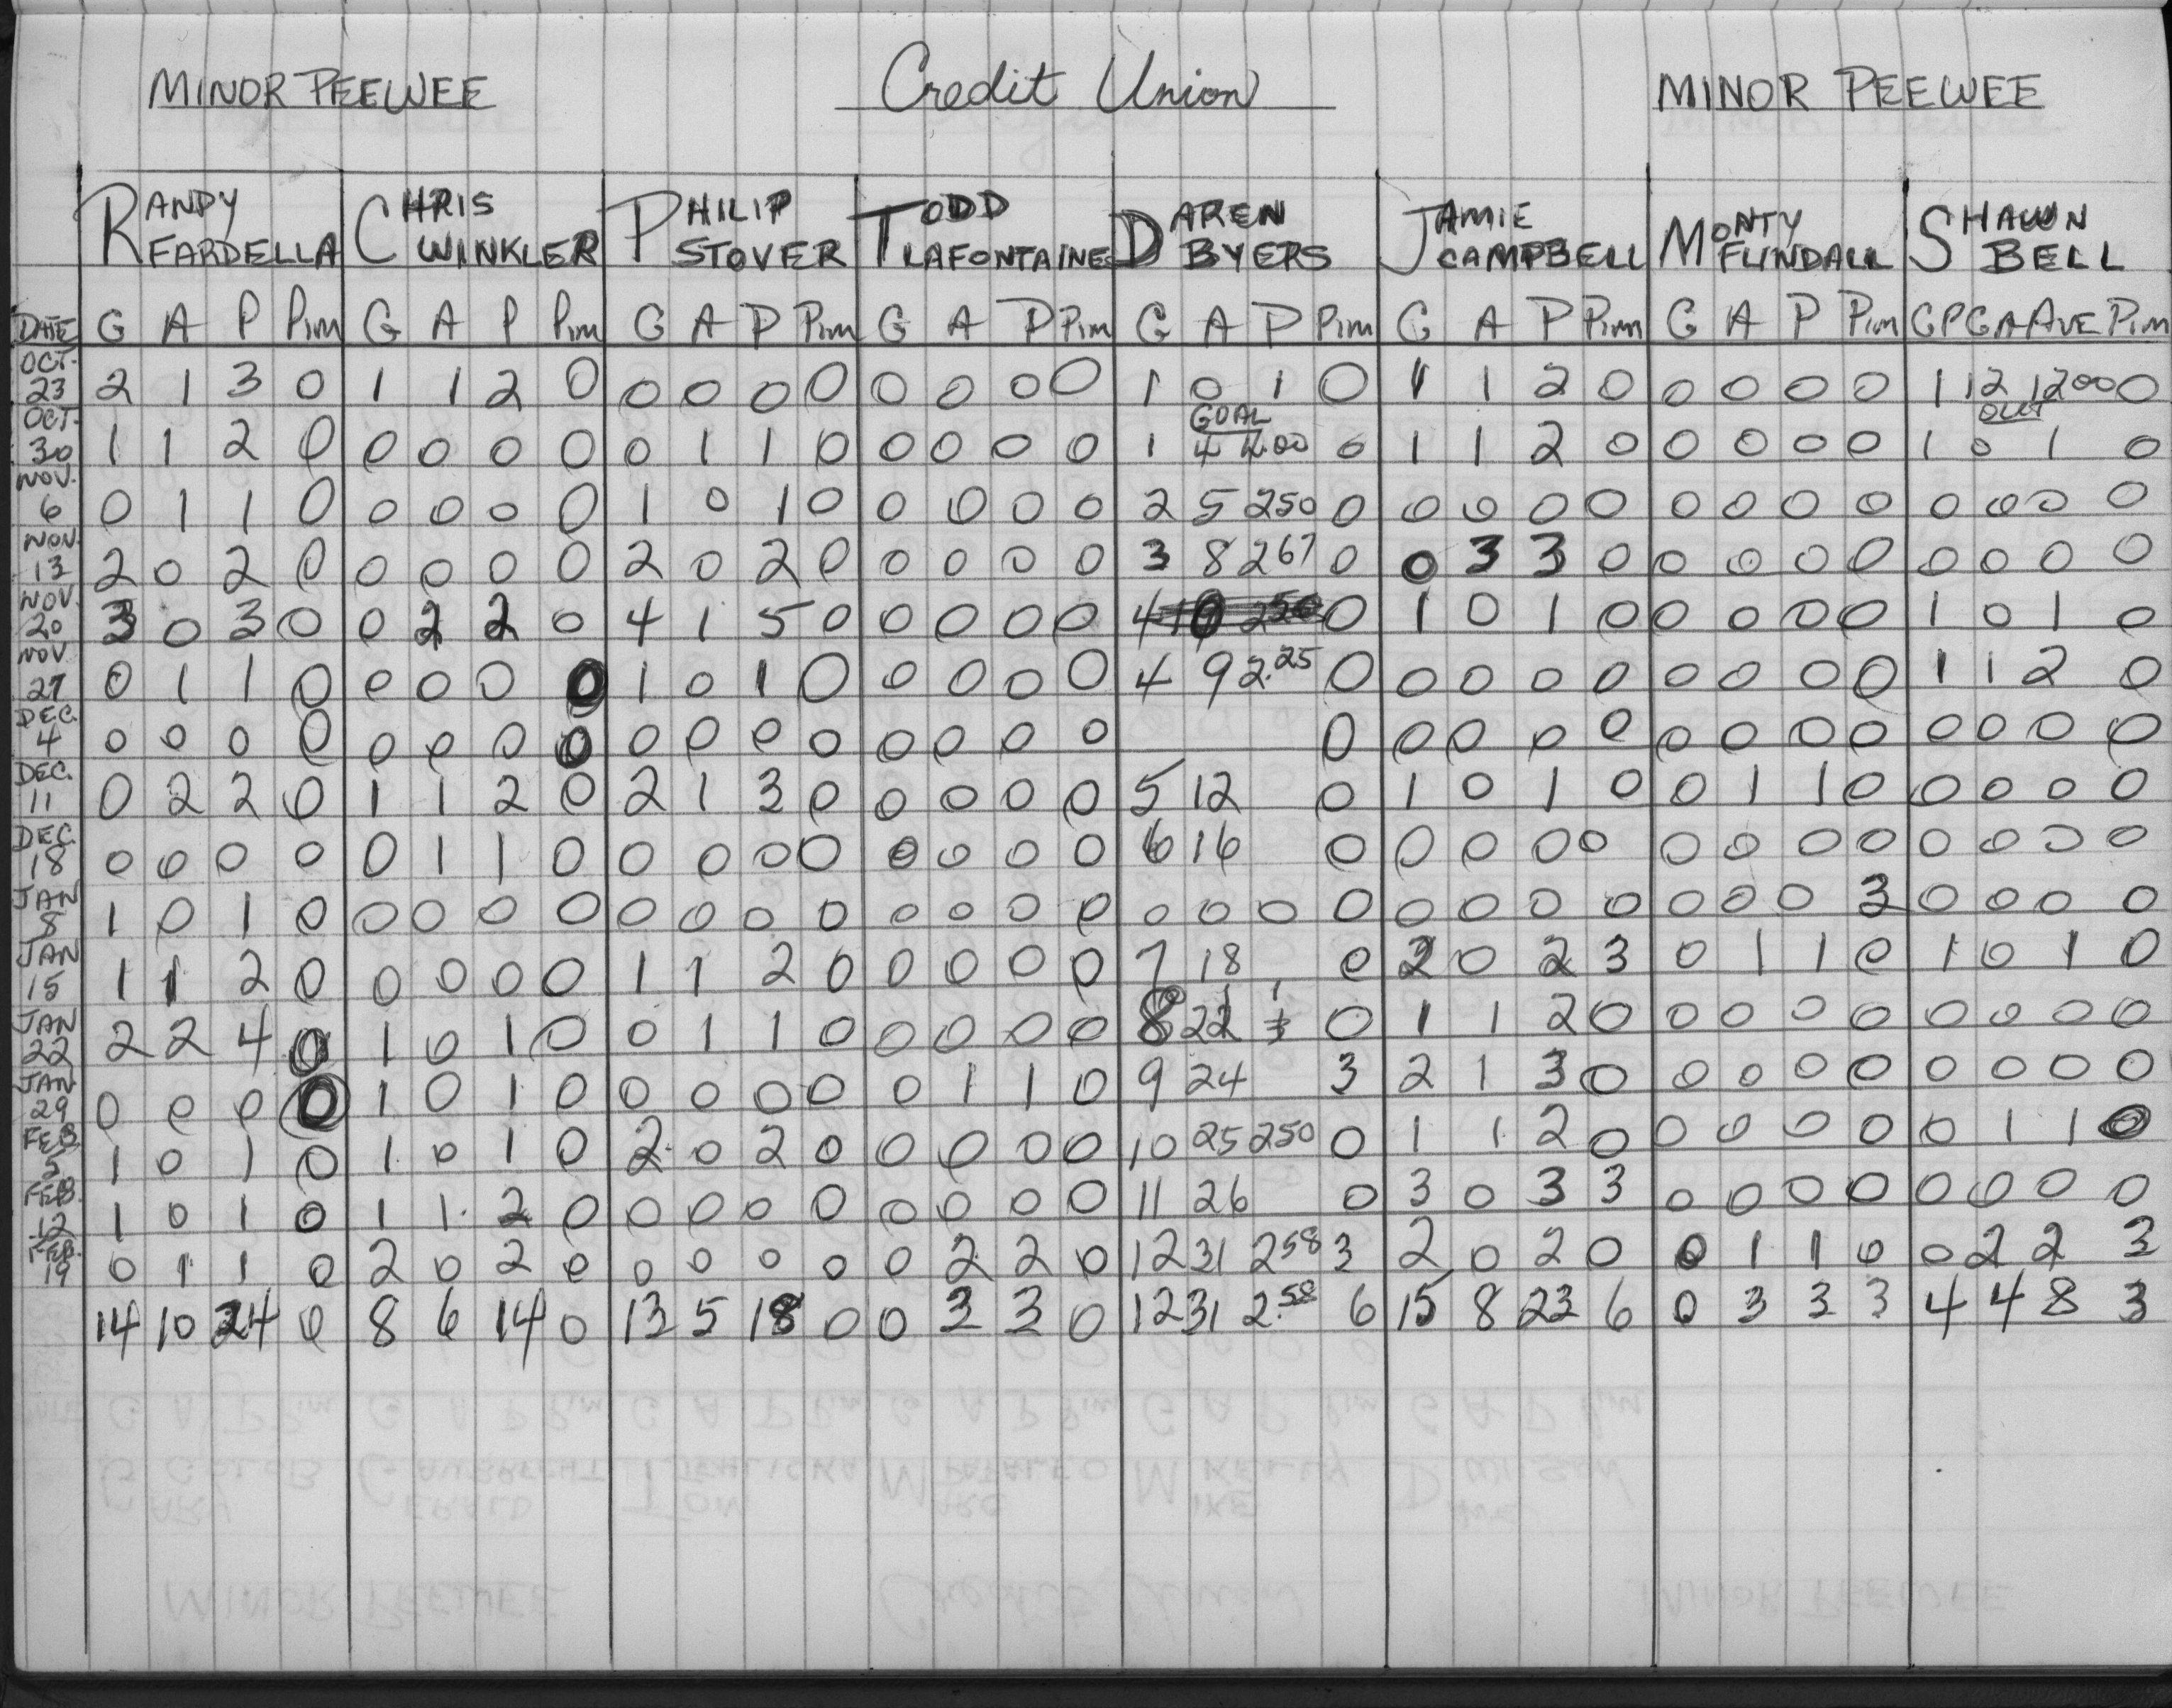 MINOR PEEWEE Credit Union MINOR PEEWEE
RANDY FARDELLA CHRIS WINKLER PHILIP STOVER TODD LAFONTAINE DAREN BYERS JAMIE CAMPBELL MONTY FLINDALL SHAWN BELL
DATE G A P Pim G A P Pim G A P Pim G A P Pim G A P Pim G A P Pim G A P Pim GP GA AVE Pim
OCT. 23 2 1 3 0 1 1 2 0 0 0 0 0 0 0 0 0 1 0 1 0 1 1 2 0 0 0 0 0 1 12 1200 0
GOAL OUT
OCT. 30 1 1 2 0 0 0 0 0 0 1 1 0 0 0 0 0 1 4 4.00 0 1 1 2 0 0 0 0 0 1 0 1 0
NOV. 6 0 1 1 0 0 0 0 0 1 0 1 0 0 0 0 0 2 5 250 0 0 0 0 0 0 0 0 0 0 0 0 0
NOV. 13 2 0 2 0 0 0 0 0 2 0 2 0 0 0 0 0 3 8 267 0 0 3 3 0 0 0 0 0 0 0 0 0
NOV. 20 3 0 3 0 0 2 2 0 4 1 5 0 0 0 0 0 4 10 250 0 1 0 1 0 0 0 0 0 1 0 1 0
NOV 27 0 1 1 0 0 0 0 0 1 0 1 0 0 0 0 0 4 9 2.25 0 0 0 0 0 0 0 0 0 1 1 2 0
DEC. 4 0 0 0 0 0 0 0 0 0 0 0 0 0 0 0 0 0 0 0 0 0 0 0 0 0 0 0 0 0
DEC. 11 0 2 2 0 1 1 2 0 2 1 3 0 0 0 0 0 5 12 0 1 0 1 0 0 1 1 0 0 0 0 0
DEC 18 0 0 0 0 0 1 1 0 0 0 0 0 0 0 0 0 6 16 0 0 0 0 0 0 0 0 0 0 0 0 0
JAN 8 1 0 1 0 0 0 0 0 0 0 0 0 0 0 0 0 0 0 0 0 0 0 0 0 0 0 0 3 0 0 0 0
JAN 15 1 1 2 0 0 0 0 0 1 1 2 0 0 0 0 0 7 18 0 2 0 2 3 0 1 1 0 1 0 1 0
JAN 22 2 2 4 0 1 0 1 0 0 1 1 0 0 0 0 0 8 22 0 1 1 2 0 0 0 0 0 0 0 0 0
JAN 29 0 0 0 0 1 0 1 0 0 0 0 0 0 1 1 0 9 24 3 2 1 3 0 0 0 0 0 0 0 0 0
FEB 5 1 0 1 0 1 0 1 0 2 0 2 0 0 0 0 0 10 25 250 0 1 1 2 0 0 0 0 0 0 1 1 0
FEB. 12 1 0 1 0 1 1 2 0 0 0 0 0 0 0 0 0 11 26 0 3 0 3 3 0 0 0 0 0 0 0 0
FEB. 19 0 1 1 0 2 0 2 0 0 0 0 0 0 2 2 0 12 31 258 3 2 0 2 0 0 1 1 0 0 2 2 3
14 10 24 0 8 6 14 0 13 5 18 0 0 3 3 0 12 31 2.58 6 15 8 23 6 0 3 3 3 4 4 8 3